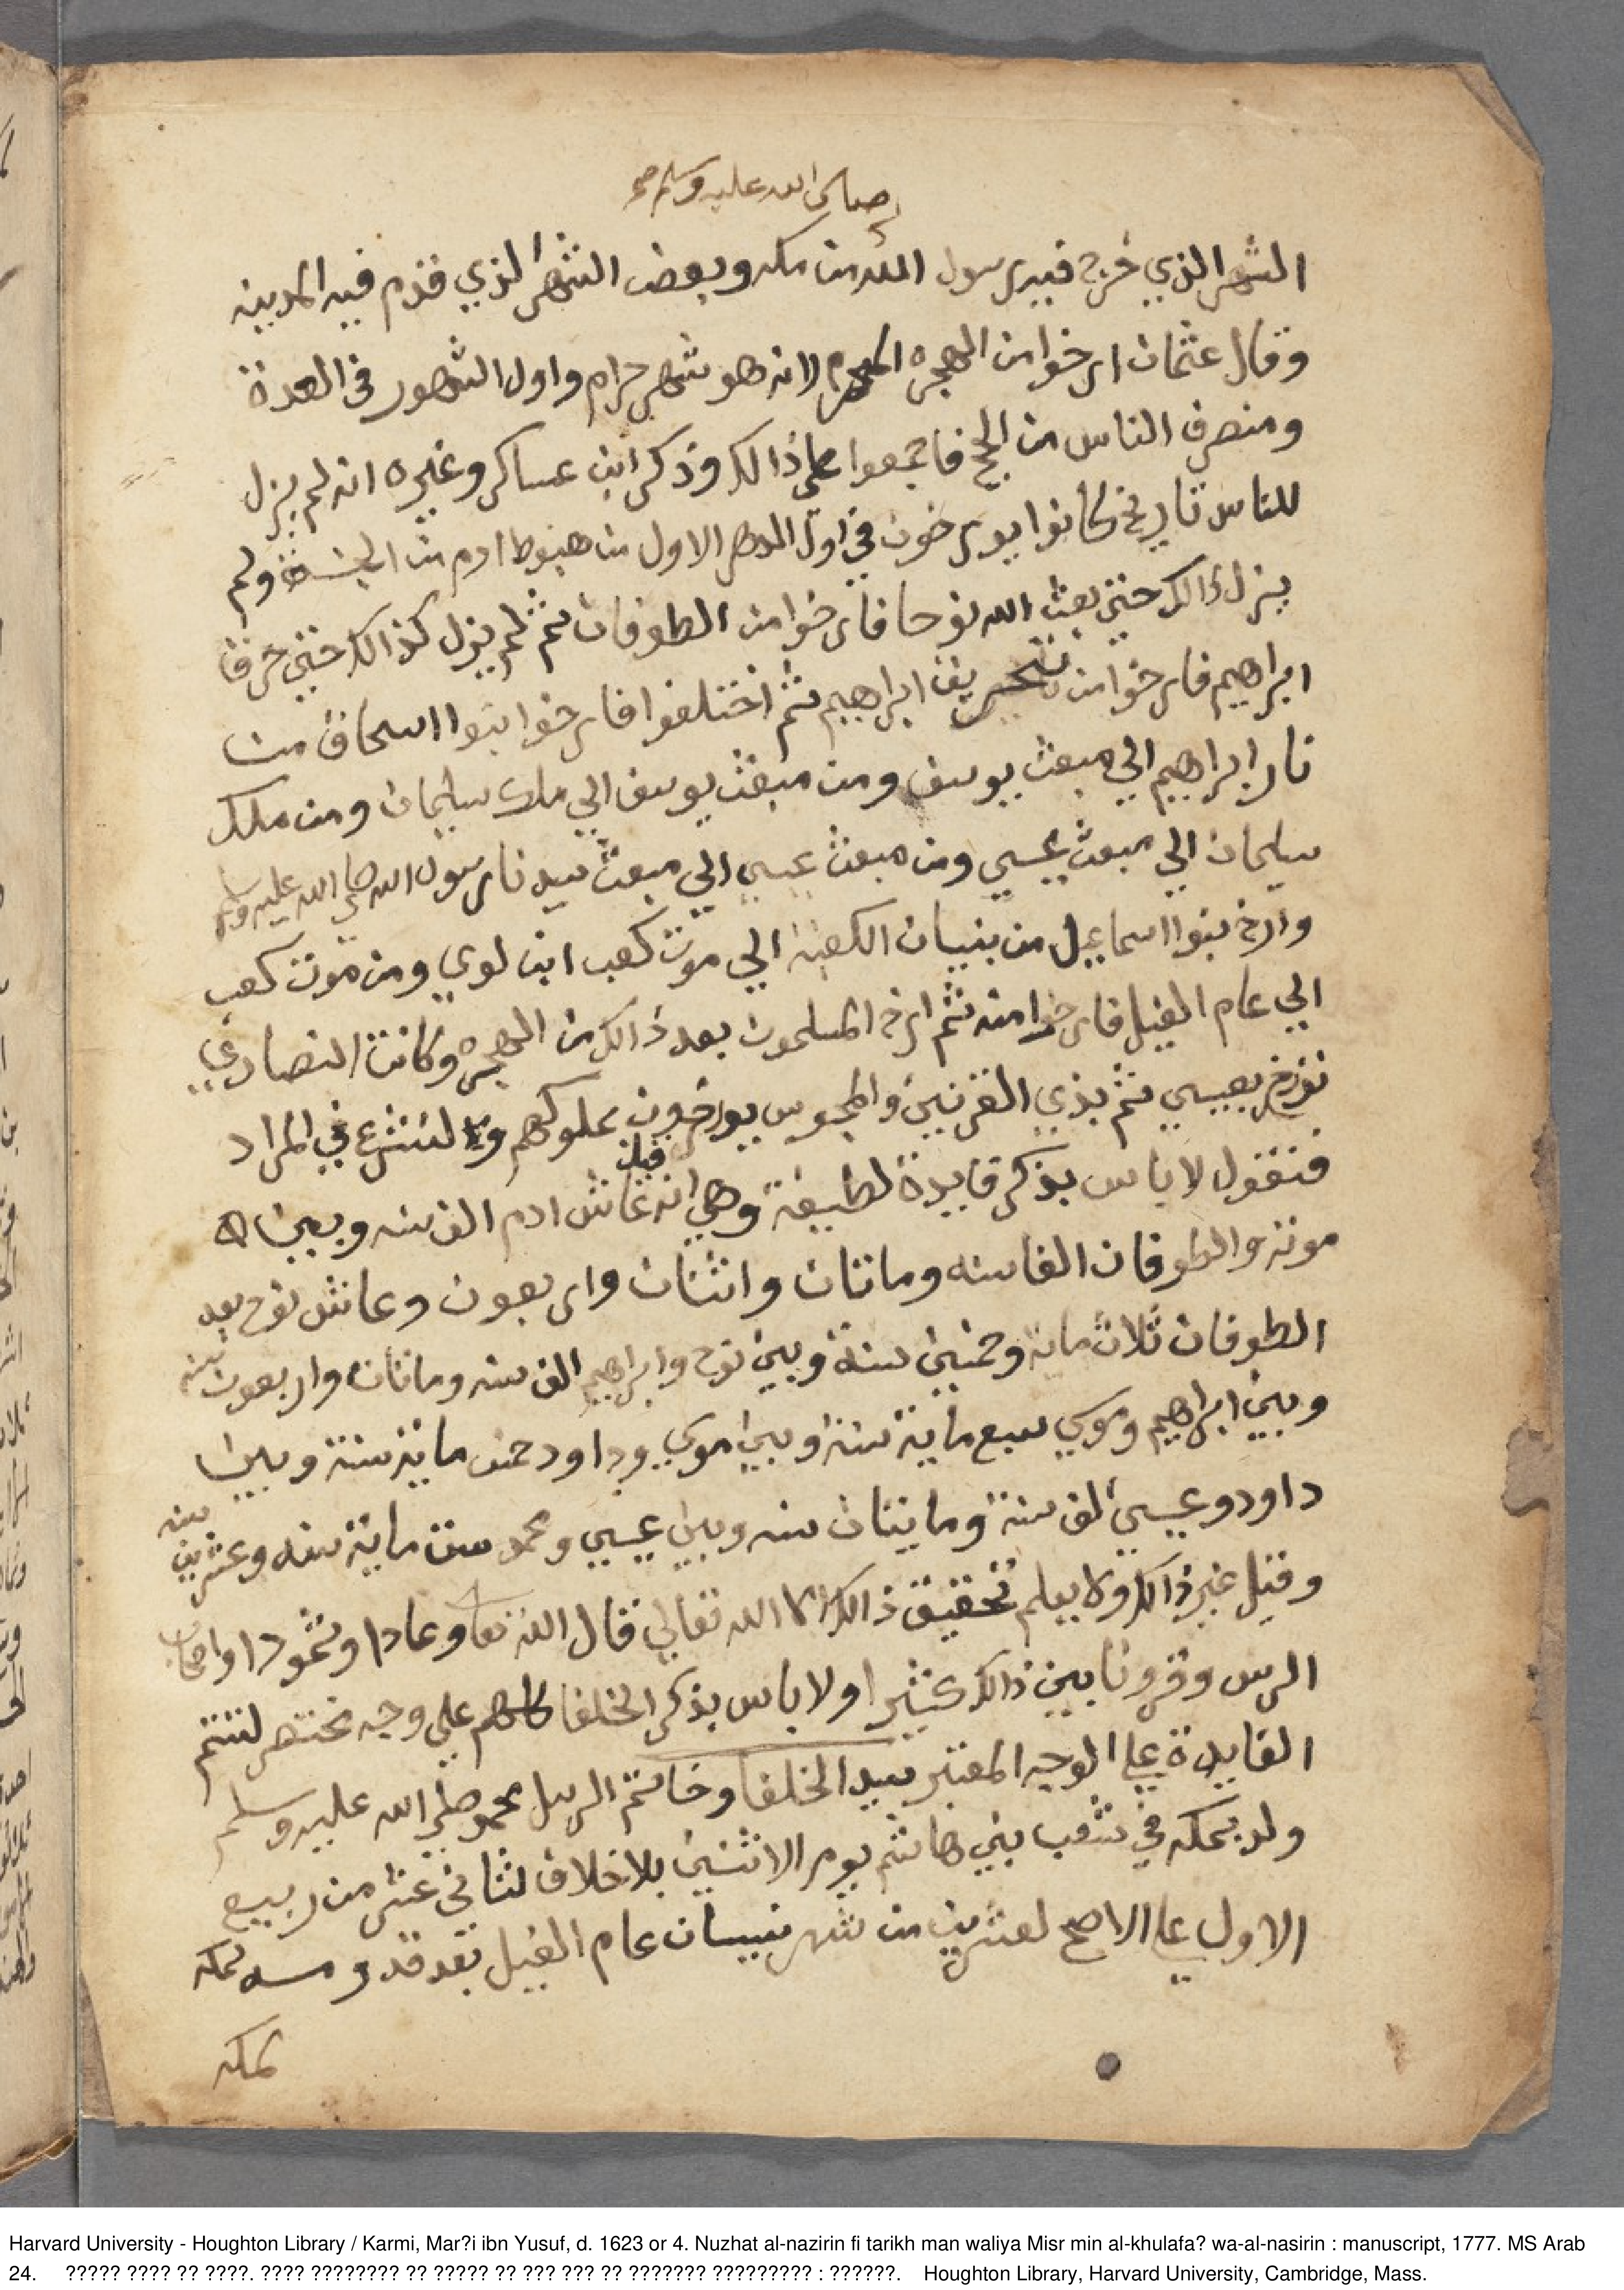 صلى الله عليه وسلم صح
الشهر الذي خرج فيه رسول الله من مكه وبعض الشهر الذي قدم فيه المدينه
وقال عثمان ارخوا من الهجره المحرم لانه هو شهر حرام واول الشهور في العدة
ومنصرف الناس من الحج فاجمعوا على ذالك وذكر ابن عساكر وغيره انه لم يزل
للناس تاريخ كانوا يورخون في اول الدهر الاول من هبوط ادم من الجنة ولم
يزل ذالك حتى بعث الله نوحا فارخوا من الطوفان ثم لم يزل كذالك حتى حرق
ابراهيم فارخوا من تحريق ابراهيم ثم اختلفوا فارخوا بنوا اسحاق من
نار ابراهيم الي مبعث يوسف ومن مبعث يوسف الي ملك سليمان ومن ملك
سليمان الي مبعث عيسي ومن مبعث عيسي الي مبعث سيدنا رسول الله صلى الله عليه وسلم
وارخ بنوا اسماعيل من بنيان الكعبة الي موت كعب ابن لوي ومن موت كعب
الي عام الفيل فارخوا منه ثم ارخ المسلمون بعد ذالك من الهجره وكانت النصاري
تورخ بعيسي ثم بذي القرنين والمجوس يورخون بملوكهم ولنشرع في المراد
فنقول لا باس بذكر فايدة لطيفة وهي انه قيل عاش ادم الف سنه وبين
موته والطوفان الفا سنه وماتان واثنان واربعون وعاش نوح بعد
الطوفان ثلاث ماية وخمسين سنة وبين نوح وابراهيم الف سنه وماتان واربعون سنه
وبين ابراهيم وموسي سبع ماية سنة وبين موسي وداود خمس ماية سنة وبين
داود وعيسي الف سنة ومايتان سنه وبين عيسي ومحمد ست ماية سنه وعشرين سنه
وقيل غير ذالك ولا يعلم تحقيق ذالك الا الله تعالي قال الله تعا وعادا وثمودا واصحاب
الرس وقرونا بين ذالك كثيرا ولا باس بذكر الخلفا كلهم علي وجه مختصر لتتم
الفايدة على الوجه المعتبر سيد الخلفا وخاتم الرسل محمد صلى الله عليه وسلم
ولد بمكه في شعب بني هاشم يوم الاثنين بلا خلاف لثاني عشر من ربيع
الاول على الاصح لعشرين من شهر نيسان عام الفيل بعد قدومه بمكه
بمكه
Harvard University - Houghton Library / Karmi, Mar?i ibn Yusuf, d. 1623 or 4. Nuzhat al-nazirin fi tarikh man waliya Misr min al-khulafa? wa-al-nasirin : manuscript, 1777. MS Arab
24. ????? ???? ?? ????. ???? ???????? ?? ????? ?? ??? ??? ?? ??????? ????????? : ??????. Houghton Library, Harvard University, Cambridge, Mass.